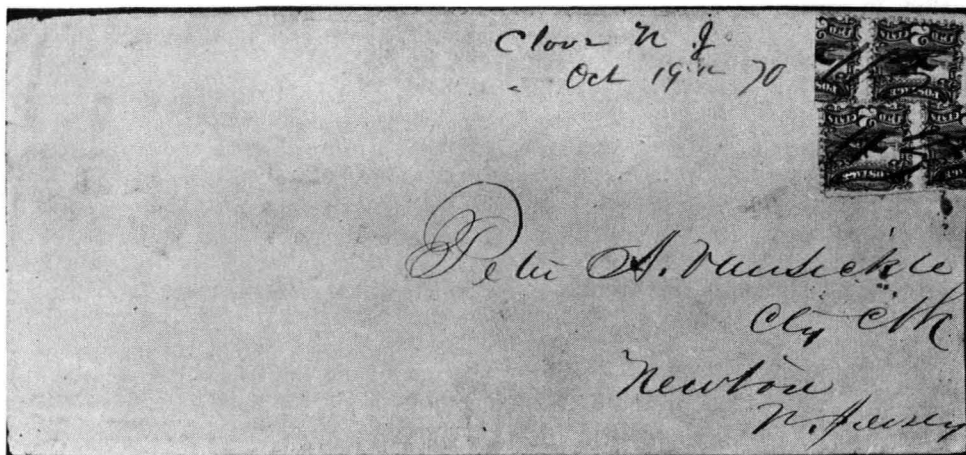 Clove N J
Oct 19th 70
Peter A. Vansickle
Cty Clk
Newton
N. Jersey